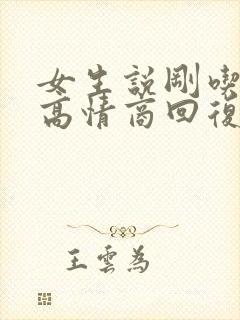 女生説剛喫
高情商回復
王雲為